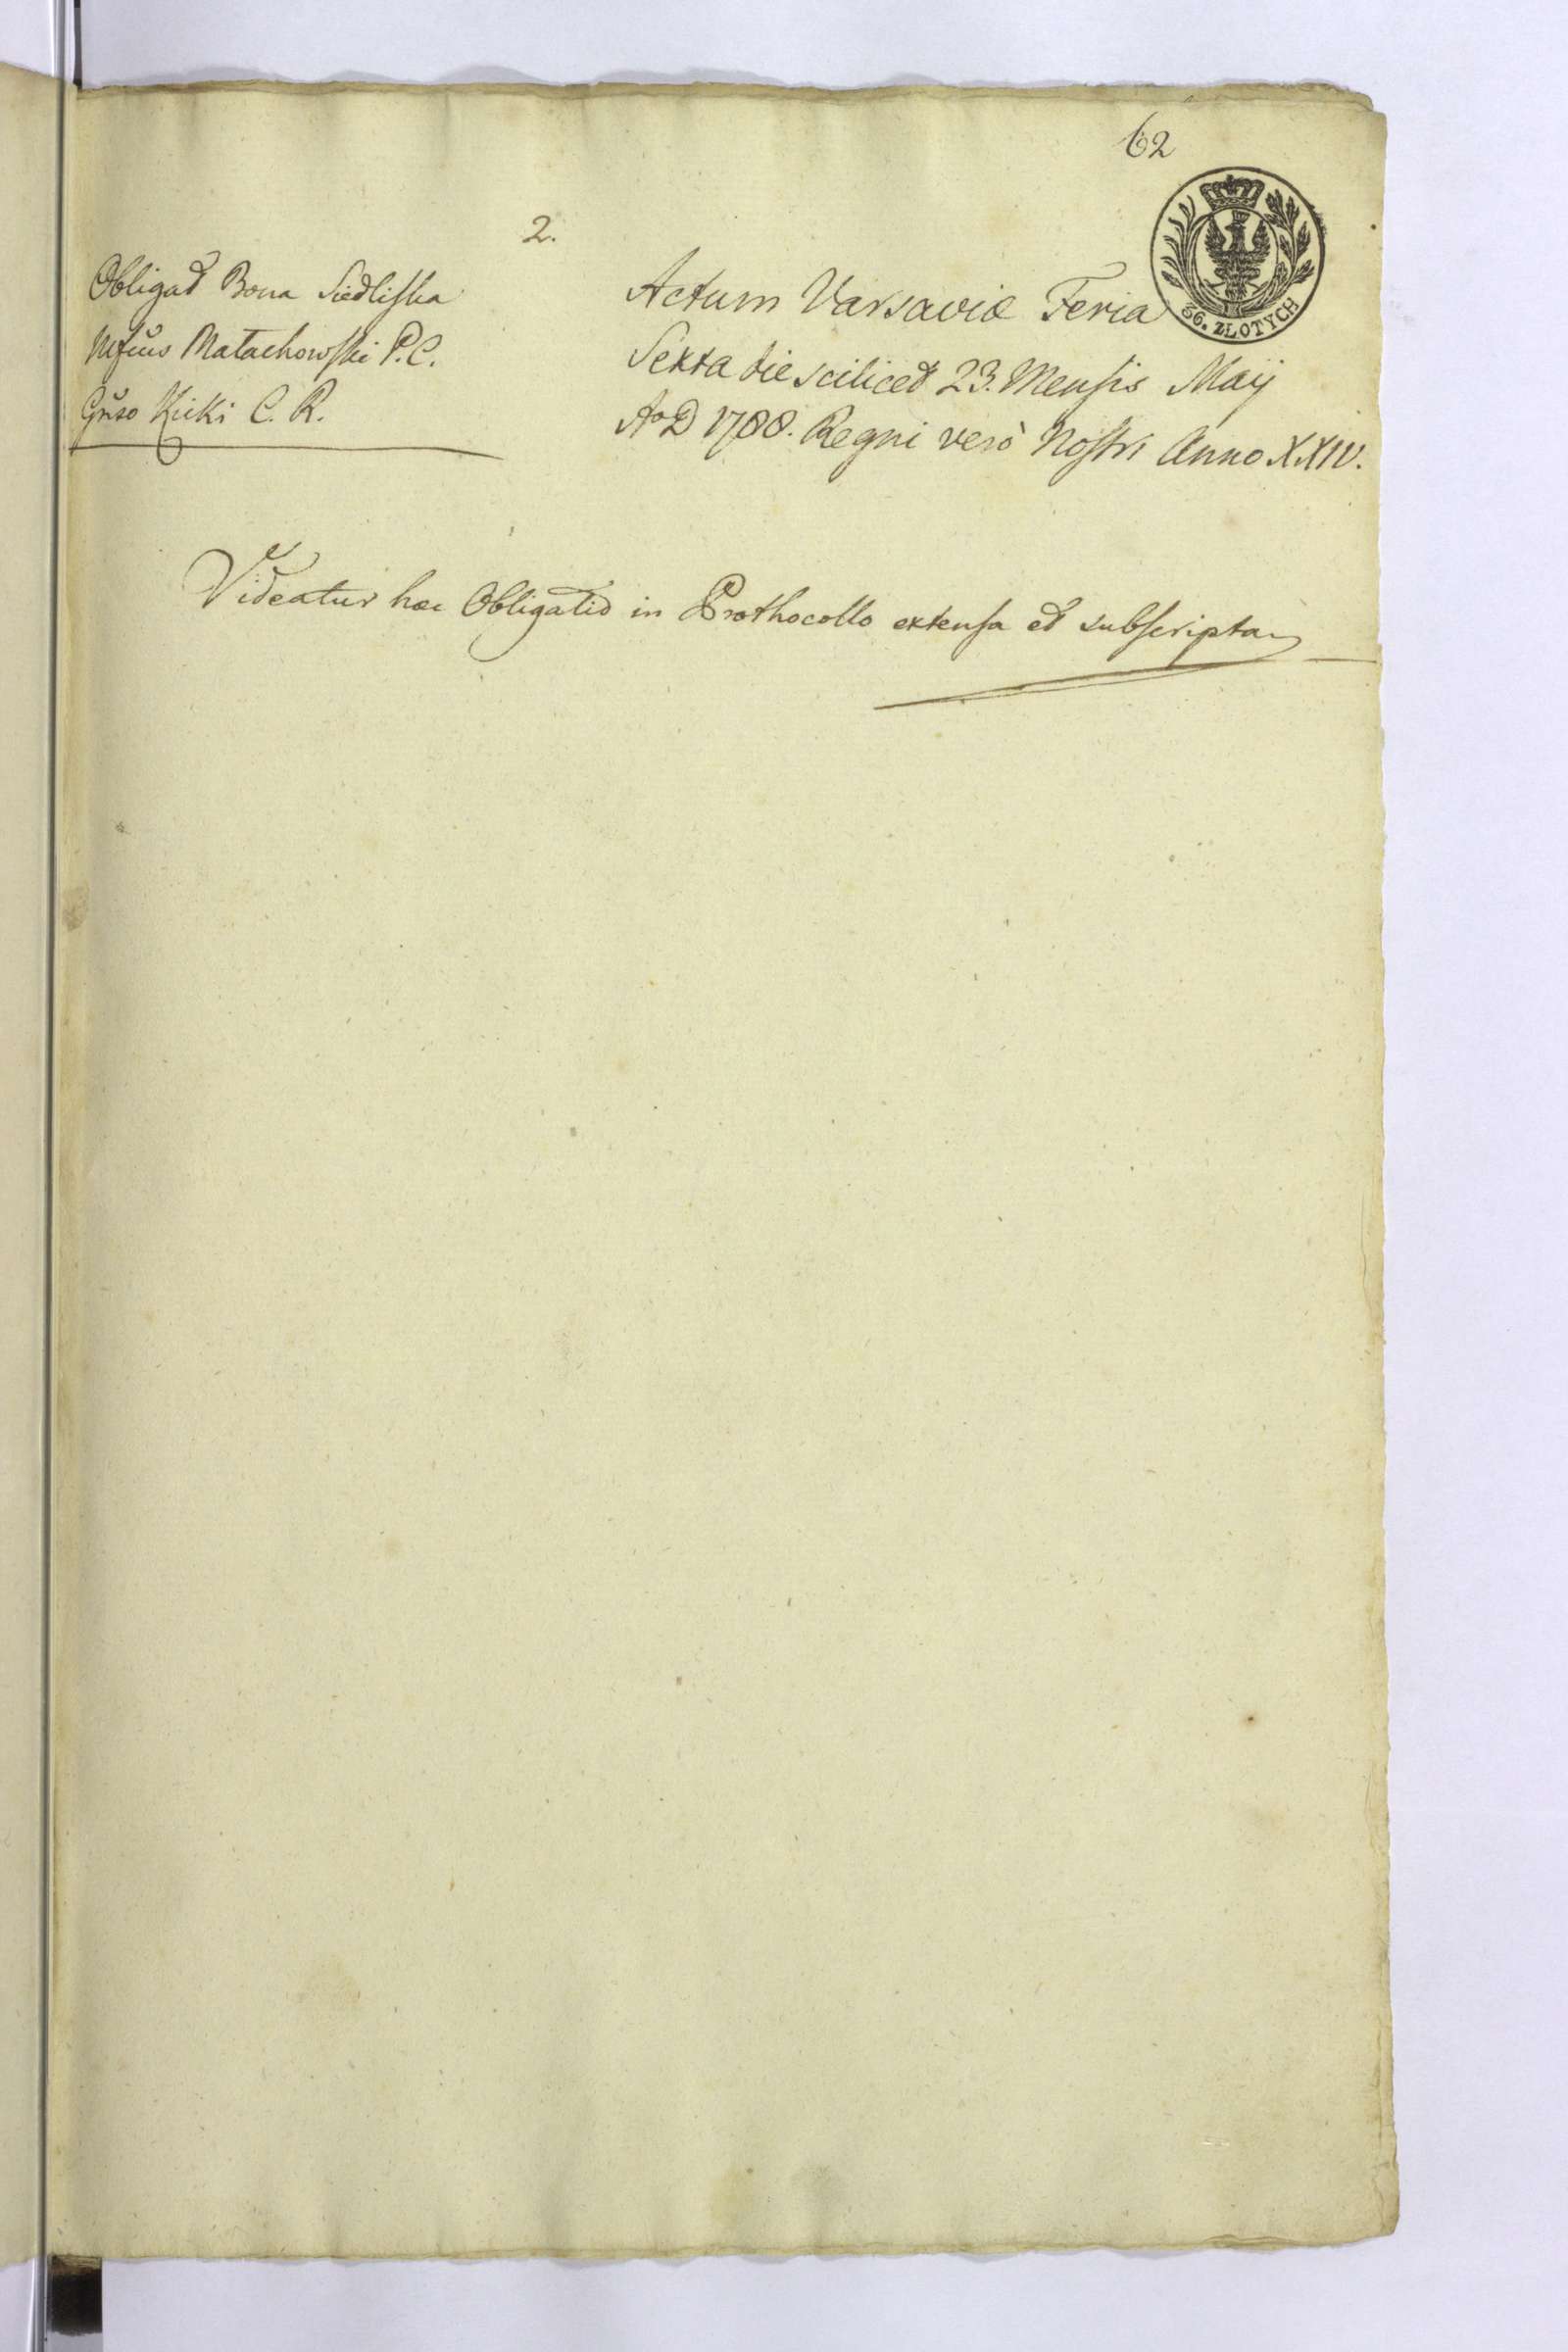 62
2.
Obligat Bona Siedliska
Mfcus Małachowski P. C.
Gñso Kicki C. R.
Actum Varsaviæ Feria
Sexta die scilicet 23. Mensis Maij
Ao D 1788. Regni verò Nostri Anno XXIV.
36. ZŁOTYCH
Videatur hæc Obligatio in Prothocollo extensa et subscripta